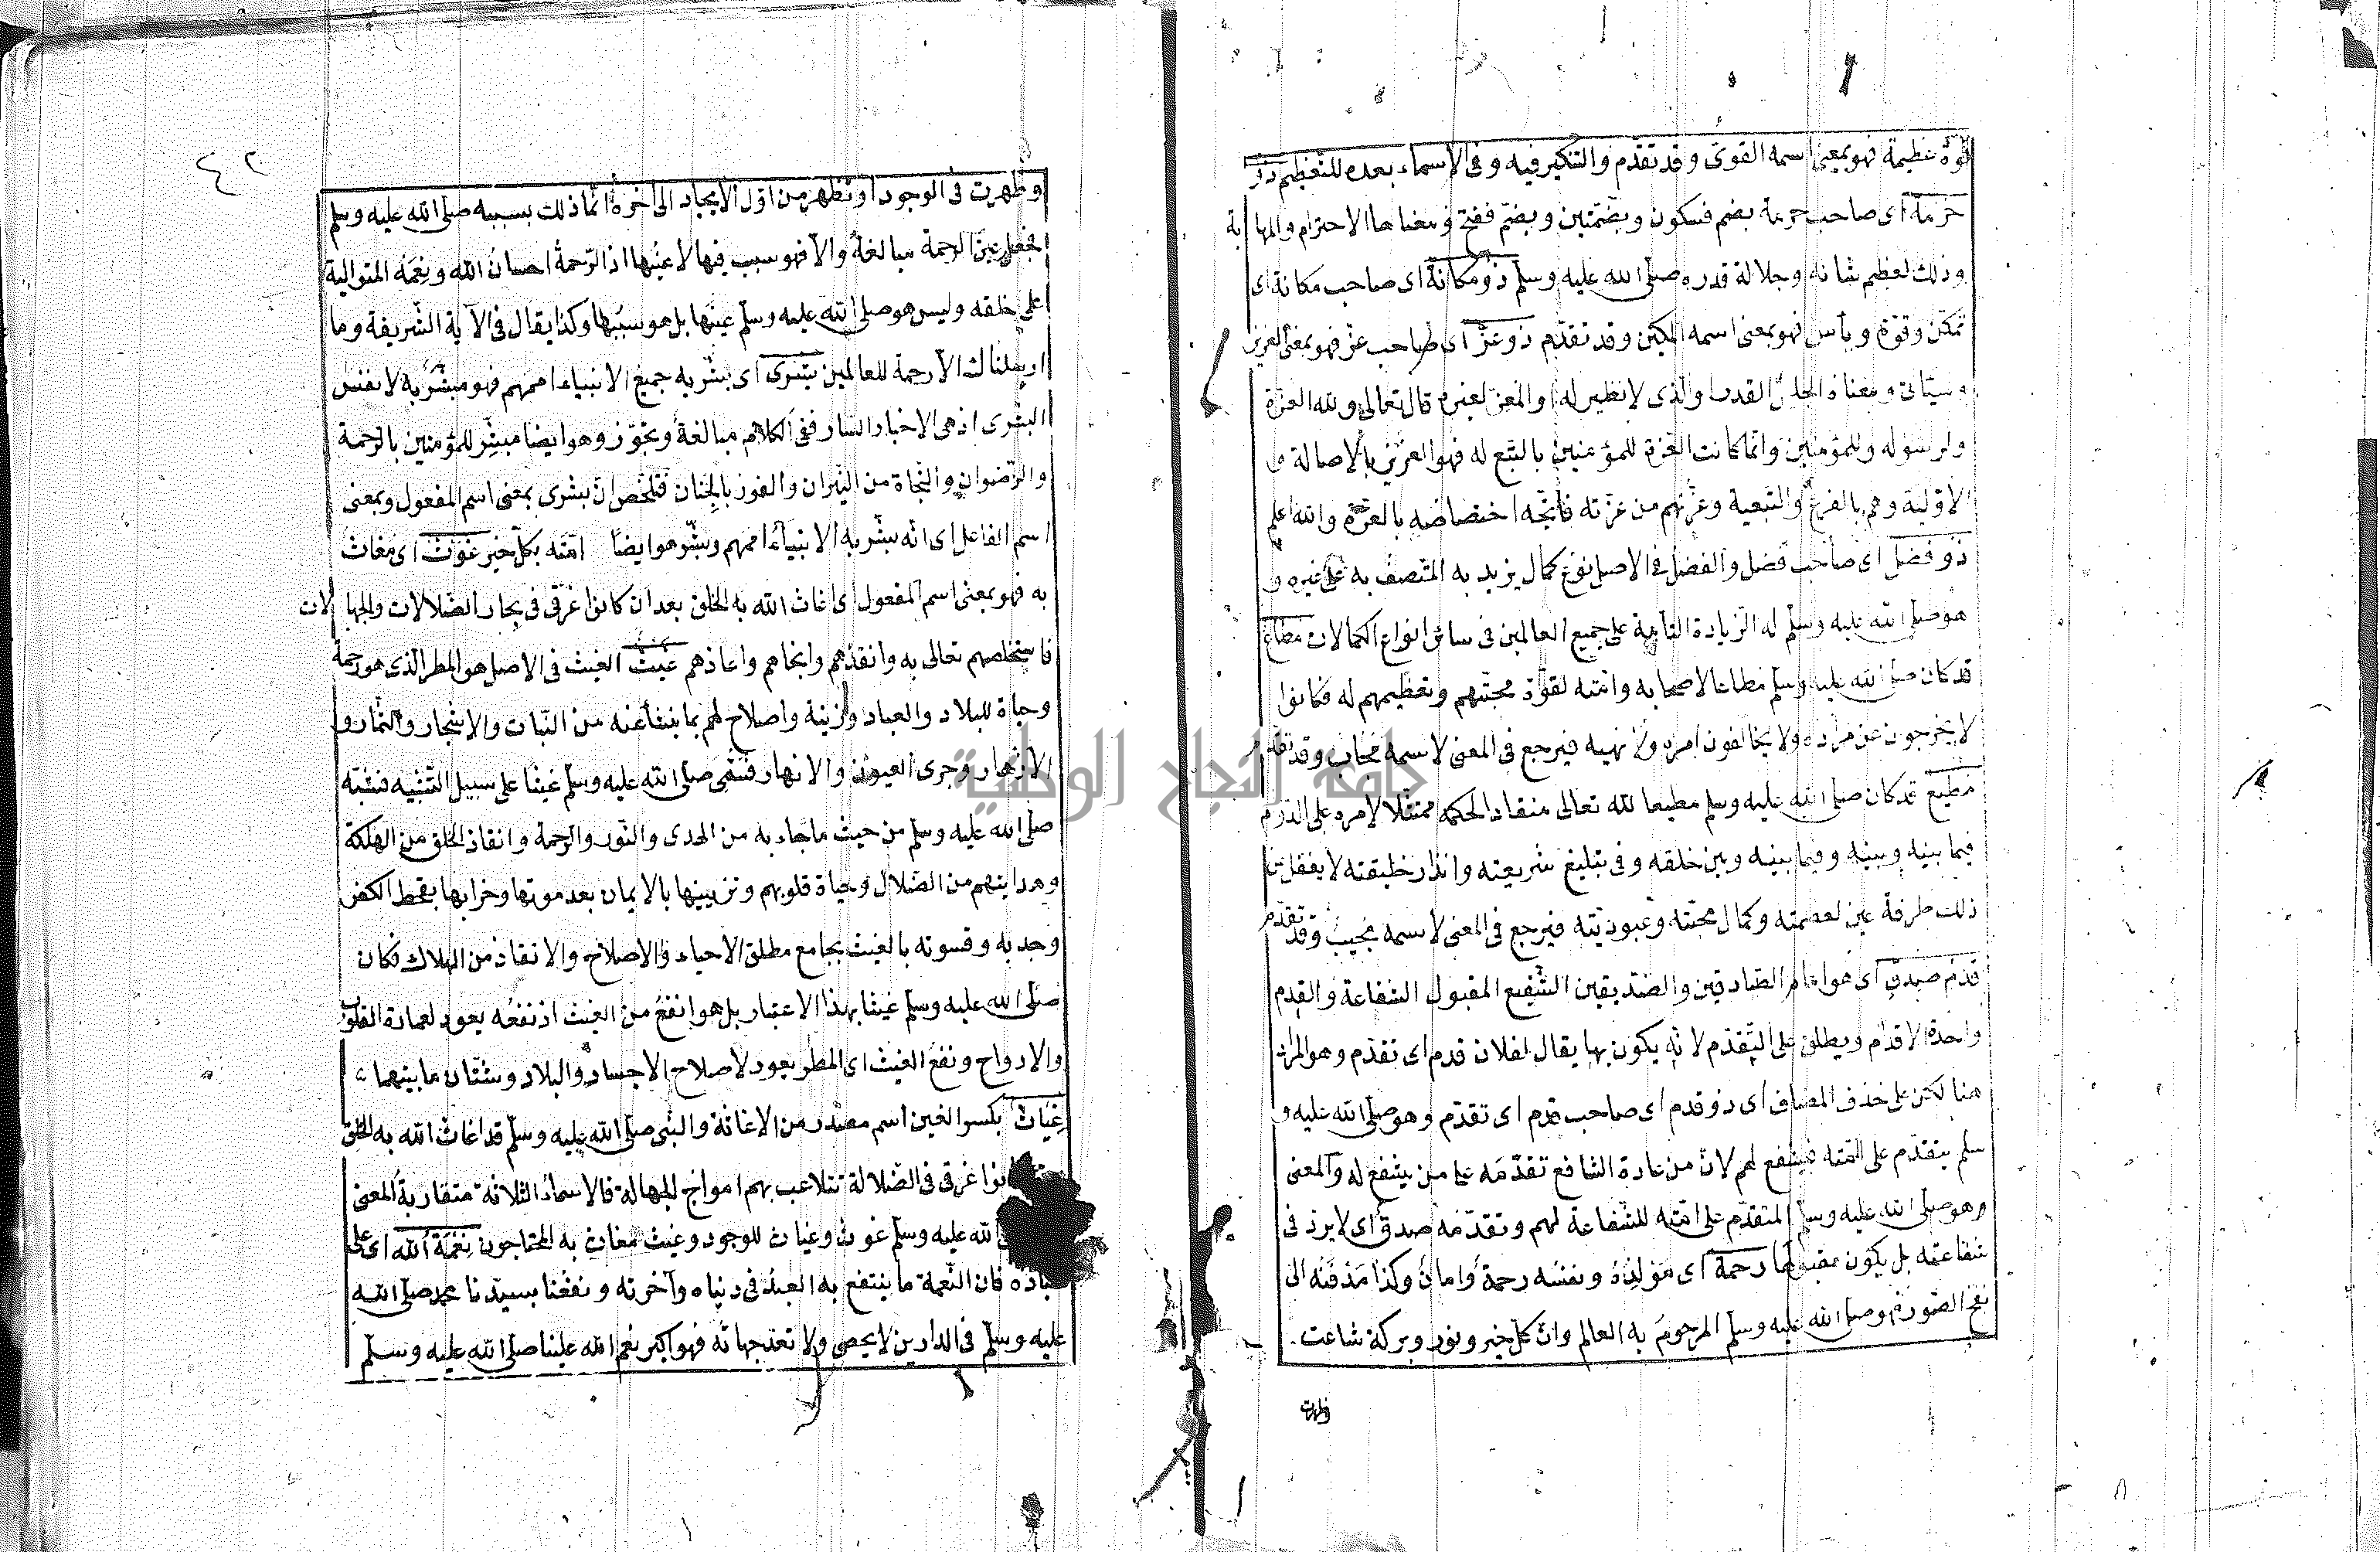 قوة عظيمة فهو بمعنى اسمه القوى وقد تقدم والتنكير فيه وفى الاسماء بعده للتعظيم ذو
حرمة اى صاحب حرمة بضم فسكون وبضمتين وبضم ففتح ومعناها الاحترام والمهابة
وذلك لعظم شانه وجلالة قدره صلى الله عليه وسلم ذو مكانة اى صاحب مكانة اى
تمكن وقوة وبأس فهو بمعنى اسمه المكين وقد تقدم ذو عز اى صاحب عز فهو بمعنى العزيز
وسيأتى ومعناه الجليل القدر والذى لا نظير له او المعز لغيره قال تعالى ولله العزة
ولرسوله وللمؤمنين وانما كانت العزة للمؤمنين بالتبع له فهو العزيز بالاصالة و
الاولية وهم بالفرع والتبعية وعزتهم من عزته فاتجه اختصاصه بالعزة والله اعلم
ذو فضل اى صاحب فضل والفضل فى الاصل نوع كمال يزيد به المتصف به على غيره و
هو صلى الله عليه وسلم له الزيادة التامة على جميع العالمين فى سائر انواع الكمالات مطاع
قد كان صلى الله عليه وسلم مطاعا لاصحابه وامته لقوة محبتهم وتعظيمهم له فكانوا
لا يخرجون عن مراده ولا يخالفون امره ولا نهيه فيرجع فى المعنى لاسمه مجاب وقد تقدم
مطيع قد كان صلى الله عليه وسلم مطيعا لله تعالى منقادا لحكمه ممتثلا لامره على الدوام
فيما بينه وبينه وفيما بينه وبين خلقه وفى تبليغ شريعته وانذار خليقته لا يغفل عن
ذلك طرفة عين لعصمته وكمال محبته وعبوديته فيرجع فى المعنى لاسمه مجيب وقد تقدم
قدم صدق اى هو امام الصادقين والصديقين الشفيع المقبول الشفاعة والقدم
واحدة الاقدام ويطلق على التقدم لانه يكون بها يقال لفلان قدم اى تقدم وهو المراد
هنا لكن على حذف المضاف اى ذو قدم اى صاحب قدم اى تقدم وهو صلى الله عليه و
سلم يتقدم على امته فيشفع لهم لان من عادة الشافع تقدمه على من يشفع له والمعنى
وهو صلى الله عليه وسلم المتقدم على امته للشفاعة لهم وتقدمه صدق اى لا يرد فى
شفاعته بل يكون مقبولها رحمة اى مولده ونفسه رحمة وامان وكذا مدفنه الى
نفخ الصور فهو صلى الله عليه وسلم المرحوم به العالم وان كل خير ونور وبركة شاعت
وظهرت
٤٢
وظهرت فى الوجود او تظهر من اول الايجاد الى اخره انما ذلك بسببه صلى الله عليه وسلم
فجعل عين الرحمة مبالغة والا فهو سبب فيها لا عينها اذ الرحمة احسان الله ونعمه المتوالية
على خلقه وليس هو صلى الله عليه وسلم عينها بل هو سببها وكذا يقال فى الآية الشريفة وما
ارسلناك الا رحمة للعالمين بشرى اى بشر به جميع الانبياء اممهم فهو مبشر به لا نفس
البشرى اذ هى الاخبار السار ففى الكلام مبالغة وتجوز وهو ايضا مبشر للمؤمنين بالرحمة
والرضوان والنجاة من النيران والفوز بالجنان فتلخص ان بشرى بمعنى اسم المفعول وبمعنى
اسم الفاعل اى انه بشر به الانبياء اممهم وبشر هو ايضا امته بكل خير غوث اى مغاث
به فهو بمعنى اسم المفعول اى اغاث الله به الخلق بعد ان كانوا غرقى فى بحار الضلالات والجهالات
فاستخلصهم تعالى به وانقذهم وانجاهم واعاذهم غيث الغيث فى الاصل هو المطر الذى هو رحمة
وحياة للبلاد والعباد وزينة واصلاح لهم بما ينشأ عنه من النبات والاشجار والثمار و
الازهار وجرى العيون والانهار فسمى صلى الله عليه وسلم غيثا على سبيل التشبيه فشبه
صلى الله عليه وسلم من حيث ما جاء به من الهدى والنور والرحمة وانقاذ الخلق من الهلكة
وهدايتهم من الضلال وحياة قلوبهم وتزيينها بالايمان بعد موتها وخرابها بقحط الكفر
وجدبه وقسوته بالغيث بجامع مطلق الاحياء والاصلاح والانقاذ من الهلاك فكان
صلى الله عليه وسلم غيثا بهذا الاعتبار بل هو انفع من الغيث اذ نفعه يعود لعمارة القلوب
والارواح ونفع الغيث اى المطر يعود لاصلاح الاجساد والبلاد وشتان ما بينهما
غياث بكسر الغين اسم مصدر من الاغاثة والنبى صلى الله عليه وسلم قد اغاث الله به الخلق
كانوا غرقى فى الضلالة تتلاعب بهم امواج الجهالة فالاسماء الثلاثة متقاربة المعنى
الله عليه وسلم غوث وغياث للوجود وغيث مغاث به المحتاجون نعمة الله اى على
عباده فان النعمة ما ينتفع به العبد فى دنياه وآخرته ونفعنا بسيدنا محمد صلى الله
عليه وسلم فى الدارين لا يحصى ولا تعد جهاته فهو اكبر نعم الله علينا صلى الله عليه وسلم
جامعة النجاح الوطنية